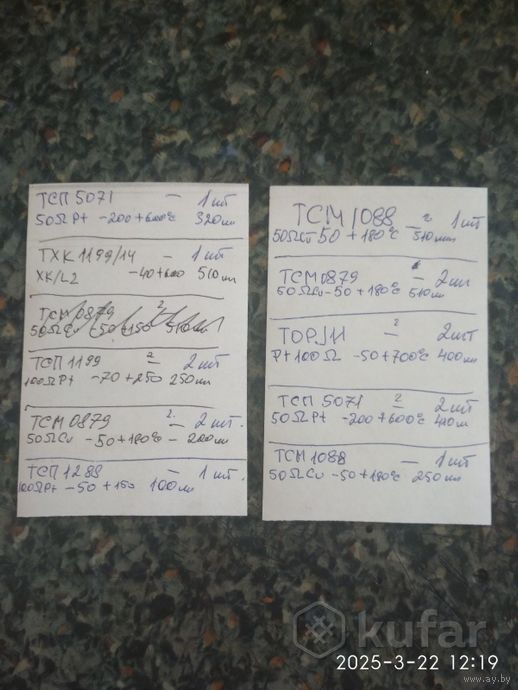 ТСП 5071 — 1 шт
50Ω Pt -200 +600°C 320мм
ТХК 1199/14 — 1 шт
ХК/L2 -40 +600 510мм
ТСМ 0879 2
50Ω Cu -50 +150 510мм
ТСП 1199 — 2 шт
100Ω Pt -70 +250 250мм
ТСМ 0879 — 2 шт.
50Ω Cu -50 +180°C — 200мм
ТСП 1288 — 1 шт.
100Ω Pt -50 +150 100мм
ТСМ 1088 — 1 шт
50Ω 50 +180°C 510мм
ТСМ 0879 — 2шт
50Ω Cu -50 +180°C 510мм
2шт
Pt 100Ω -50 +700°C 400мм
ТСП 5071 — 2шт
50Ω Pt -200 +600°C
ТСМ 1088 — 1шт
50Ω Cu -50 +180°C 250мм
kufar
2025-3-22 12:19
www.ay.by